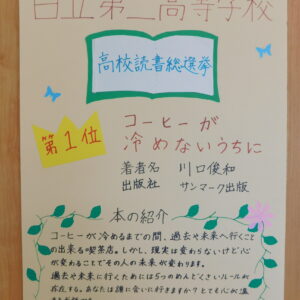 日立第二高等学校
高校読書総選挙
第1位
コーヒーが
冷めないうちに
著者名 川口俊和
出版社 サンマーク出版
本の紹介
コーヒーが冷めるまでの間、過去や未来へ行くこと
の出来る喫茶店。しかし、現実は変わらないけど心
が変わることでその人の未来が変わります。
過去や未来に行くためには5つのめんどくさいルールが
存在する。あなたは誰に会いに行きますか？とても心が温